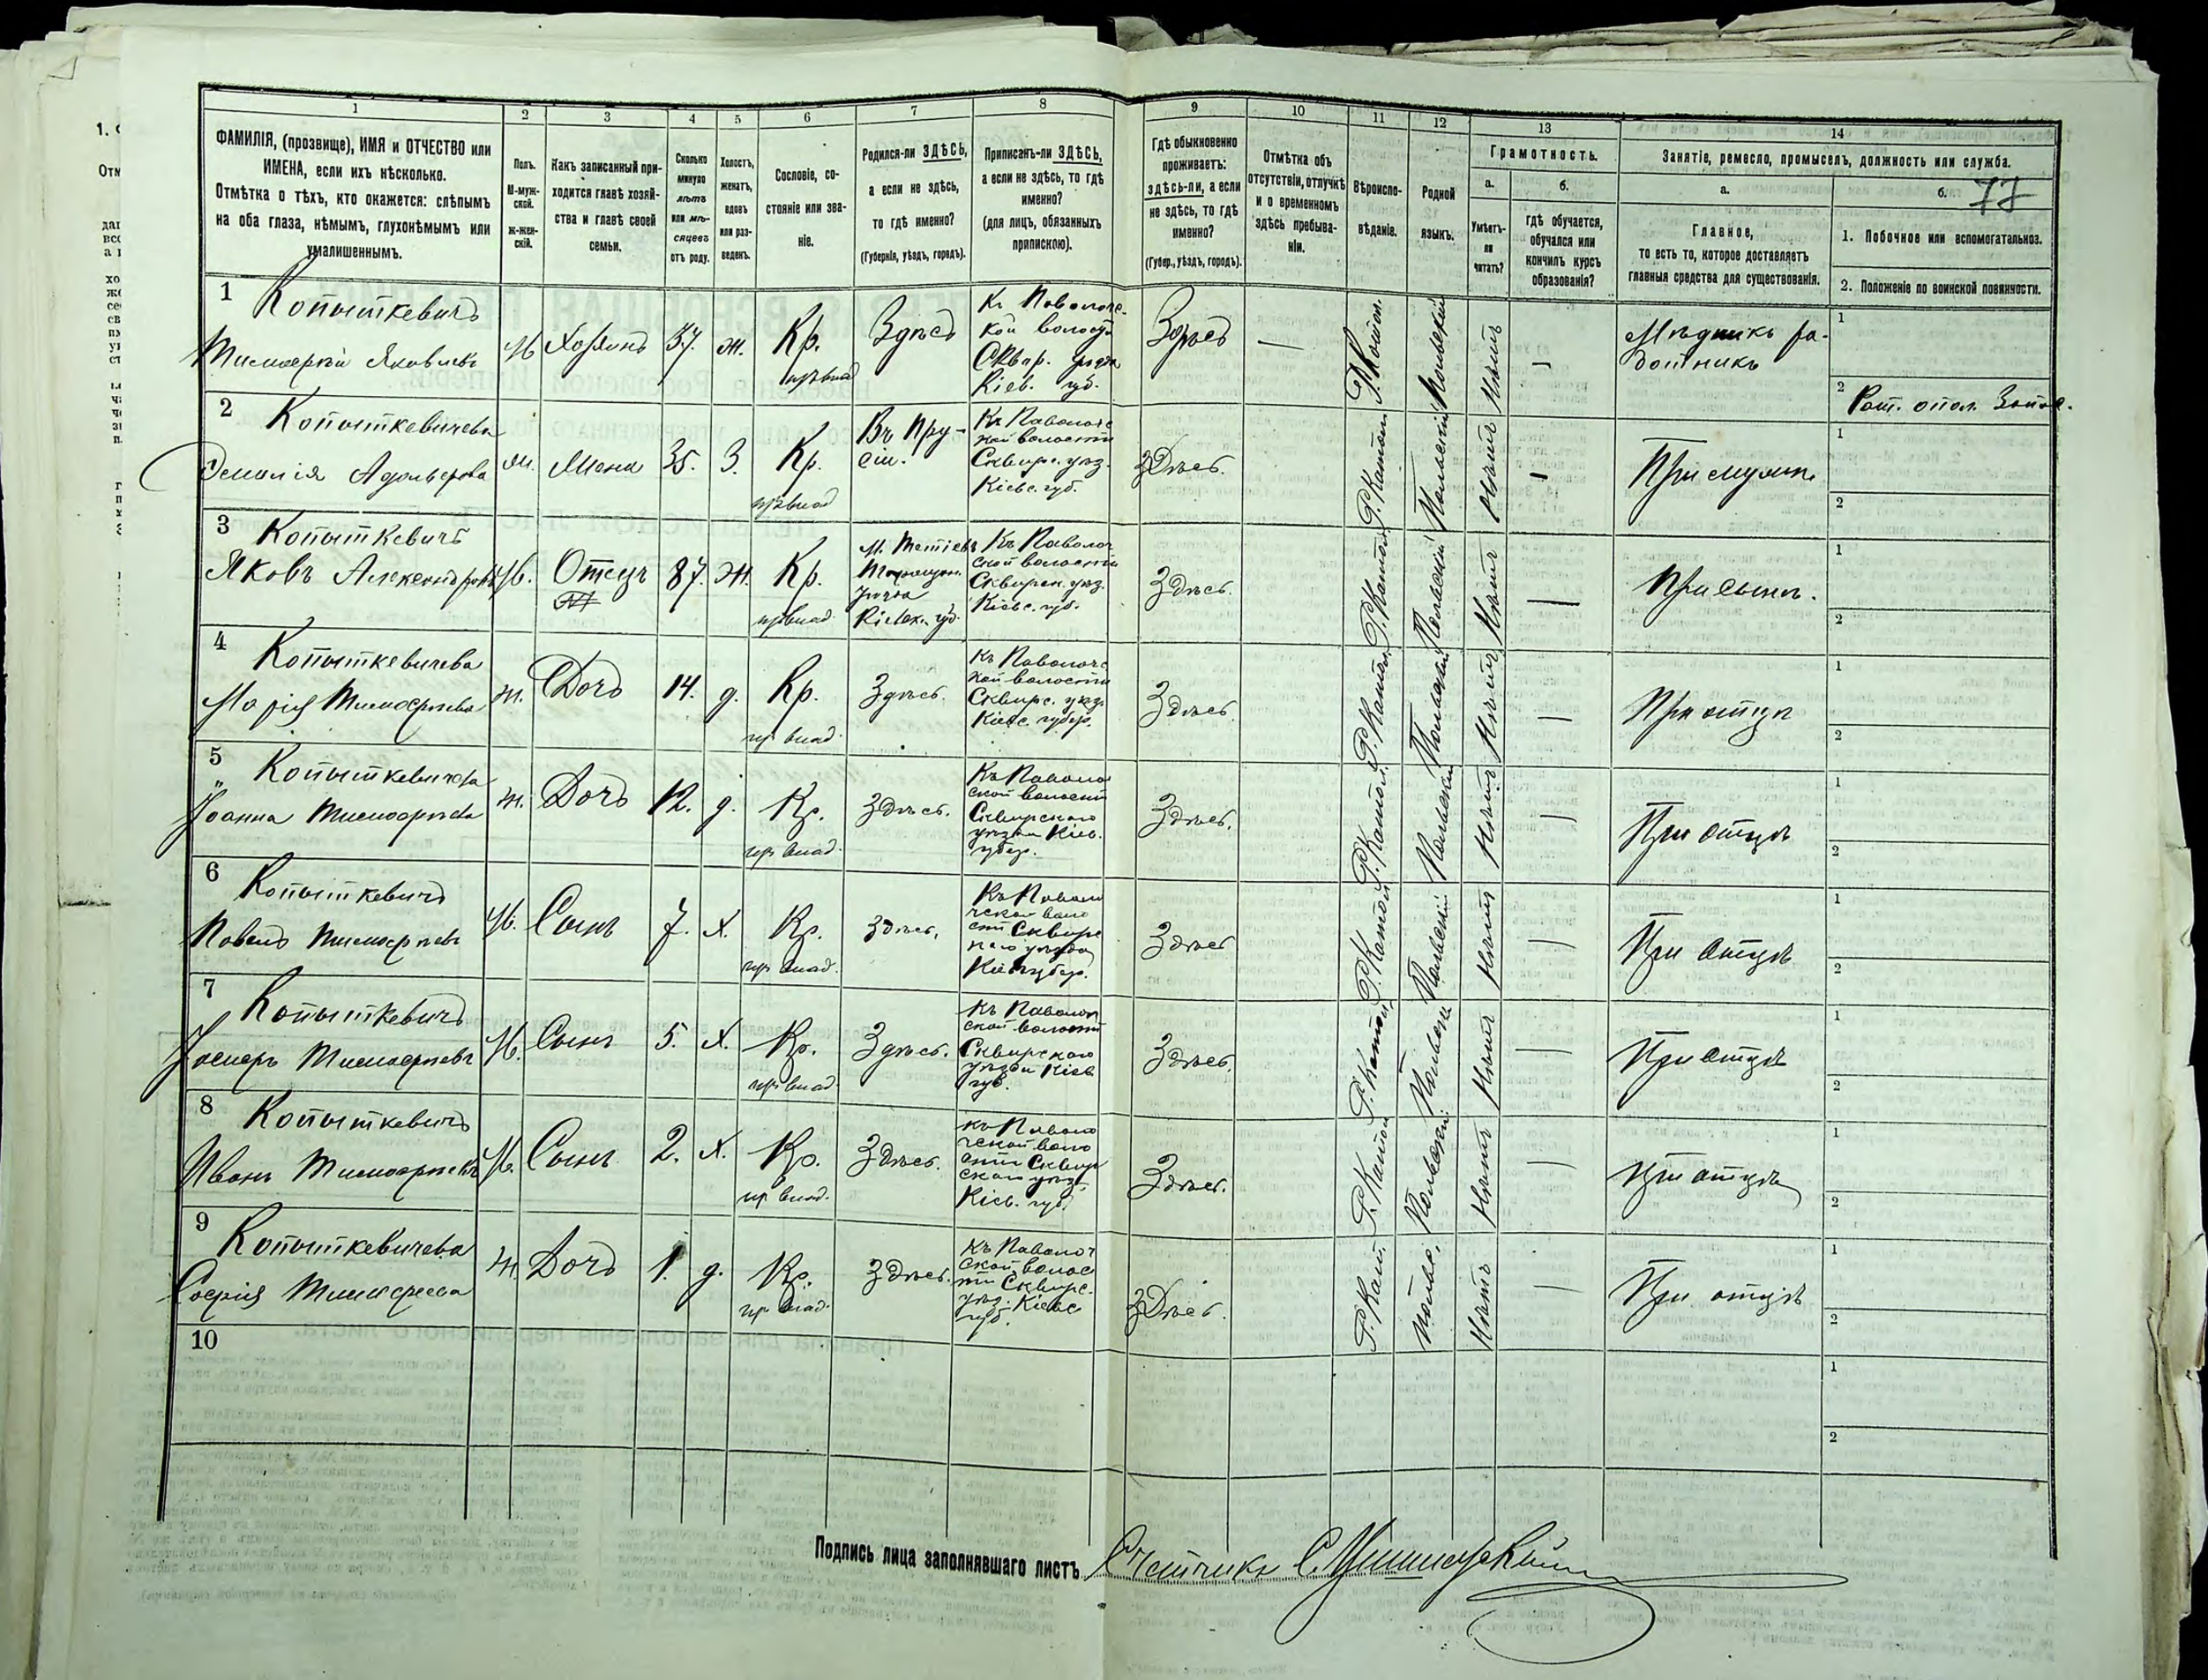 77
1
2
3
4
5
6
7
8
9
10
11
12
13
14
ФАМИЛІЯ, (прозвище), ИМЯ и ОТЧЕСТВО или
ИМЕНА, если ихъ нѣсколько.
Отмѣтка о тѣхъ, кто окажется: слѣпымъ
на оба глаза, нѣмымъ, глухонѣмымъ или
умалишеннымъ.
Полъ.
М-муж-
ской.
Ж-жен-
скій.
Какъ записанный при-
ходится главѣ хозяй-
ства и главѣ своей
семьи.
Сколько
минуло
лѣтъ
или мѣ-
сяцевъ
отъ роду.
Холостъ,
женатъ,
вдовъ
или раз-
веденъ.
Сословіе, со-
стояніе или зва-
ніе.
Родился-ли ЗДѢСЬ,
а если не здѣсь,
то гдѣ именно?
(Губернія, уѣздъ, городъ).
Приписанъ-ли ЗДѢСЬ,
а если не здѣсь, то гдѣ
именно?
(для лицъ, обязанныхъ
припискою).
Гдѣ обыкновенно
проживаетъ:
здѣсь-ли, а если
не здѣсь, то гдѣ
именно?
(Губер., уѣздъ, городъ).
Отмѣтка объ
отсутствіи, отлучкѣ
и о временномъ
здѣсь пребыва-
ніи.
Вѣроиспо-
вѣданіе.
Родной
языкъ.
Грамотность.
а.
Умѣетъ-
ли
читать?
б.
гдѣ обучается,
обучался или
кончилъ курсъ
образованія?
Занятіе, ремесло, промыселъ, должность или служба.
а.
Главное,
то есть то, которое доставляетъ
главныя средства для существованія.
б.
1. Побочное или вспомогательное.
2. Положеніе по воинской повинности.
1 Копыткевичъ
Тимофѣй Яковлевъ
М Хозяинъ 37. ж. Кр.
Здѣсь
Къ Паволочс-
кой волости
Сквир. уѣзда
Кіев. губ.
Здѣсь — Р. Катол. Польский Нѣтъ —
Мѣдникъ ра-
ботникъ
1
2
2 Копыткевичева
Эмилія Адольфова
ж. Жена 35. З. Кр.
Въ Пру-
сіи.
Къ Паволочс
кой волости
Сквирс. уѣз.
Кіевс. губ.
Здѣсь. Р. Катол Польский Нѣтъ —
При мужѣ
1
2
3 Копыткевичъ
Яковъ Александровъ
М. Отецъ 87. ж. Кр.
М. Тетіевъ
Таращан.
уѣзда
Кіевск. губ.
Къ Паволоч
ской волости
Сквирск. уѣз.
Кіевс. губ.
Здѣсь. Р. Катол Польский Нѣтъ —
При сынѣ.
1
2
4 Копыткевичева
Марія Тимофѣева
ж. Дочь 14. д. Кр.
Здѣсь.
Къ Паволочс
кой волости
Сквирс. уѣзд
Кіевс. губер.
Здѣсь Р. Катол. Польский Нѣтъ —
При отцѣ
1
2
5 Копыткевичева
Іоанна Тимофѣева
ж. Дочь 12. д. Кр.
Здѣсь.
Къ Паволоч
ской волости
Сквирскаго
уѣзда Кіев.
губер.
Здѣсь. Р. Катол. Польский Нѣтъ —
При отцѣ
1
2
6 Копыткевичъ
Павелъ Тимофѣевъ
М. Сынъ 7. х. Кр.
Здѣсь.
Къ Паволо
чской воло
сти Сквирс
каго уѣзда
Кіев губер.
Здѣсь Р. Катол Польский Нѣтъ —
При отцѣ
1
2
7 Копыткевичъ
Тимофѣевъ
М. Сынъ 5. х. Кр.
Здѣсь.
Къ Паволоч
ской волости
Сквирскаго
уѣзда Кіев
губ.
Здѣсь. Р. Катол Нѣтъ —
При отцѣ
1
2
8 Копыткевичъ
Иванъ Тимофѣевъ
М. Сынъ 2. х. Кр.
Здѣсь.
Къ Паволо
чской воло
сти Сквир
скаго уѣзд.
Кіев. губ.
Здѣсь. Р. Катол Польский Нѣтъ —
При отцѣ
1
2
9 Копыткевичева
Софія Тимофѣева
ж. Дочь 1. д. Кр.
Здѣсь.
Къ Паволоч
ской волос
ти Сквирс.
уѣз. Кіевс
губ.
Здѣсь. Р. Кат. Польс. Нѣтъ —
При отцѣ
1
2
10
1
2
Подпись лица заполнявшаго листъ Счетчикъ С.